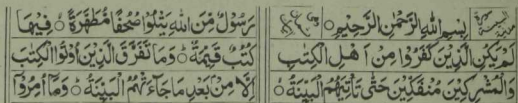 بِسْمِ اللهِ الرَّحْمٰنِ الرَّحِيْمِ
لَمْ يَكُنِ الَّذِيْنَ كَفَرُوْا مِنْ اَهْلِ الْكِتٰبِ
وَالْمُشْرِكِيْنَ مُنْفَكِّيْنَ حَتّٰى تَأْتِيَهُمُ الْبَيِّنَةُ
رَسُوْلٌ مِّنَ اللهِ يَتْلُوْا صُحُفًا مُّطَهَّرَةً فِيْهَا
كُتُبٌ قَيِّمَةٌ وَمَا تَفَرَّقَ الَّذِيْنَ اُوْتُوا الْكِتٰبَ
اِلَّا مِنْ بَعْدِ مَا جَاءَتْهُمُ الْبَيِّنَةُ وَمَا اُمِرُوْا